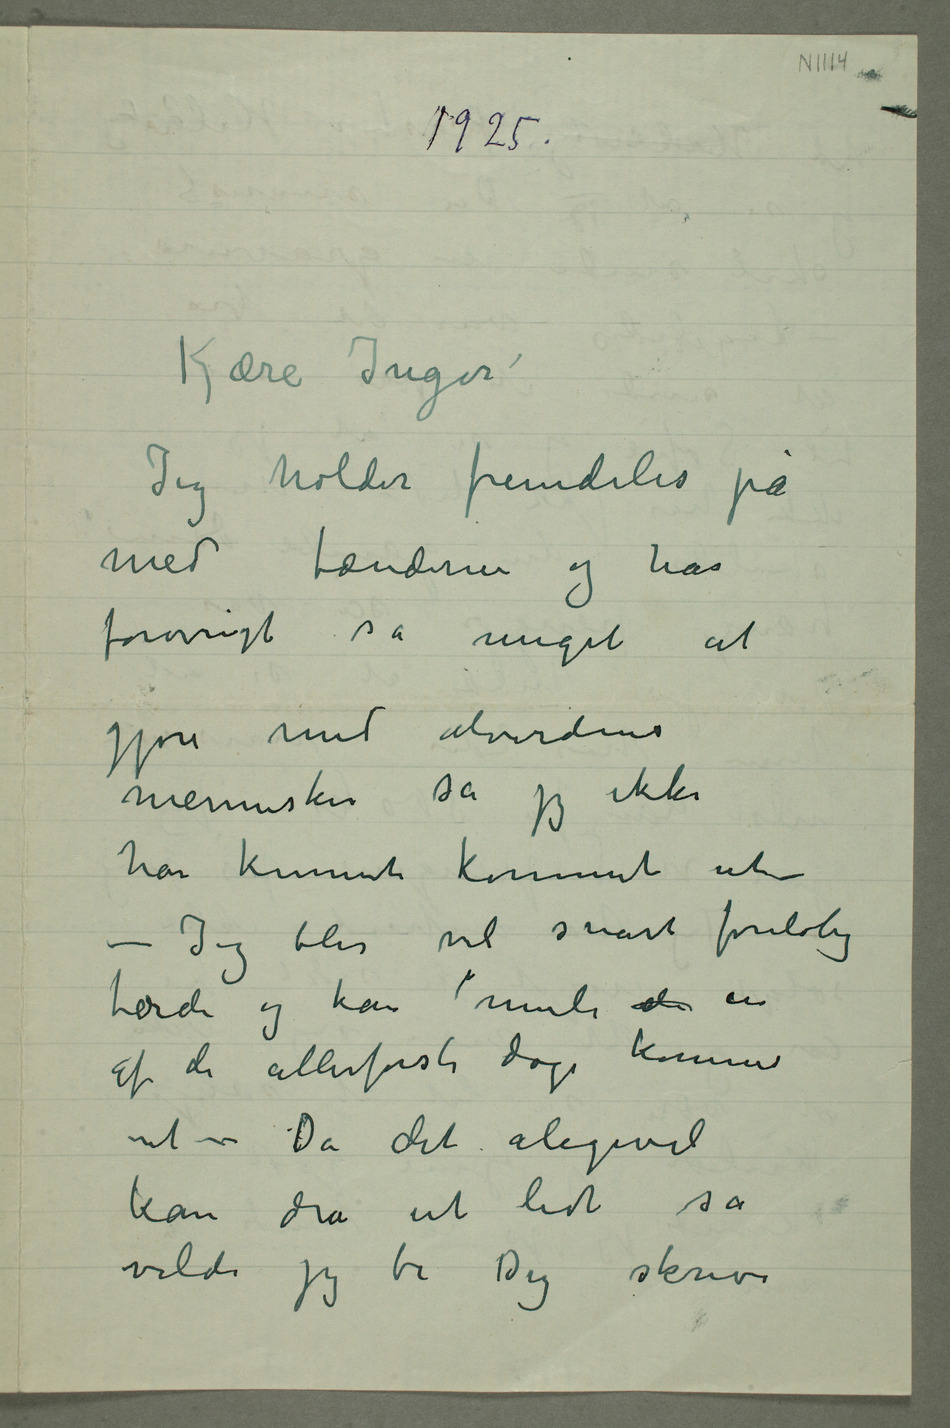 N1114
1925.
Kjære Inger
Jeg holder fremdeles på
med tænderne og har
forøvrigt så meget at
gjøre med alverdens
mennesker så jeg ikke
har kunnet kommet ut –
– Jeg blir vel snart foreløbig
færdi og kan en
af de allerførste dage komme
ut – Da det alligevel
kan dra ut lidt så
vilde jeg be Dig skrive